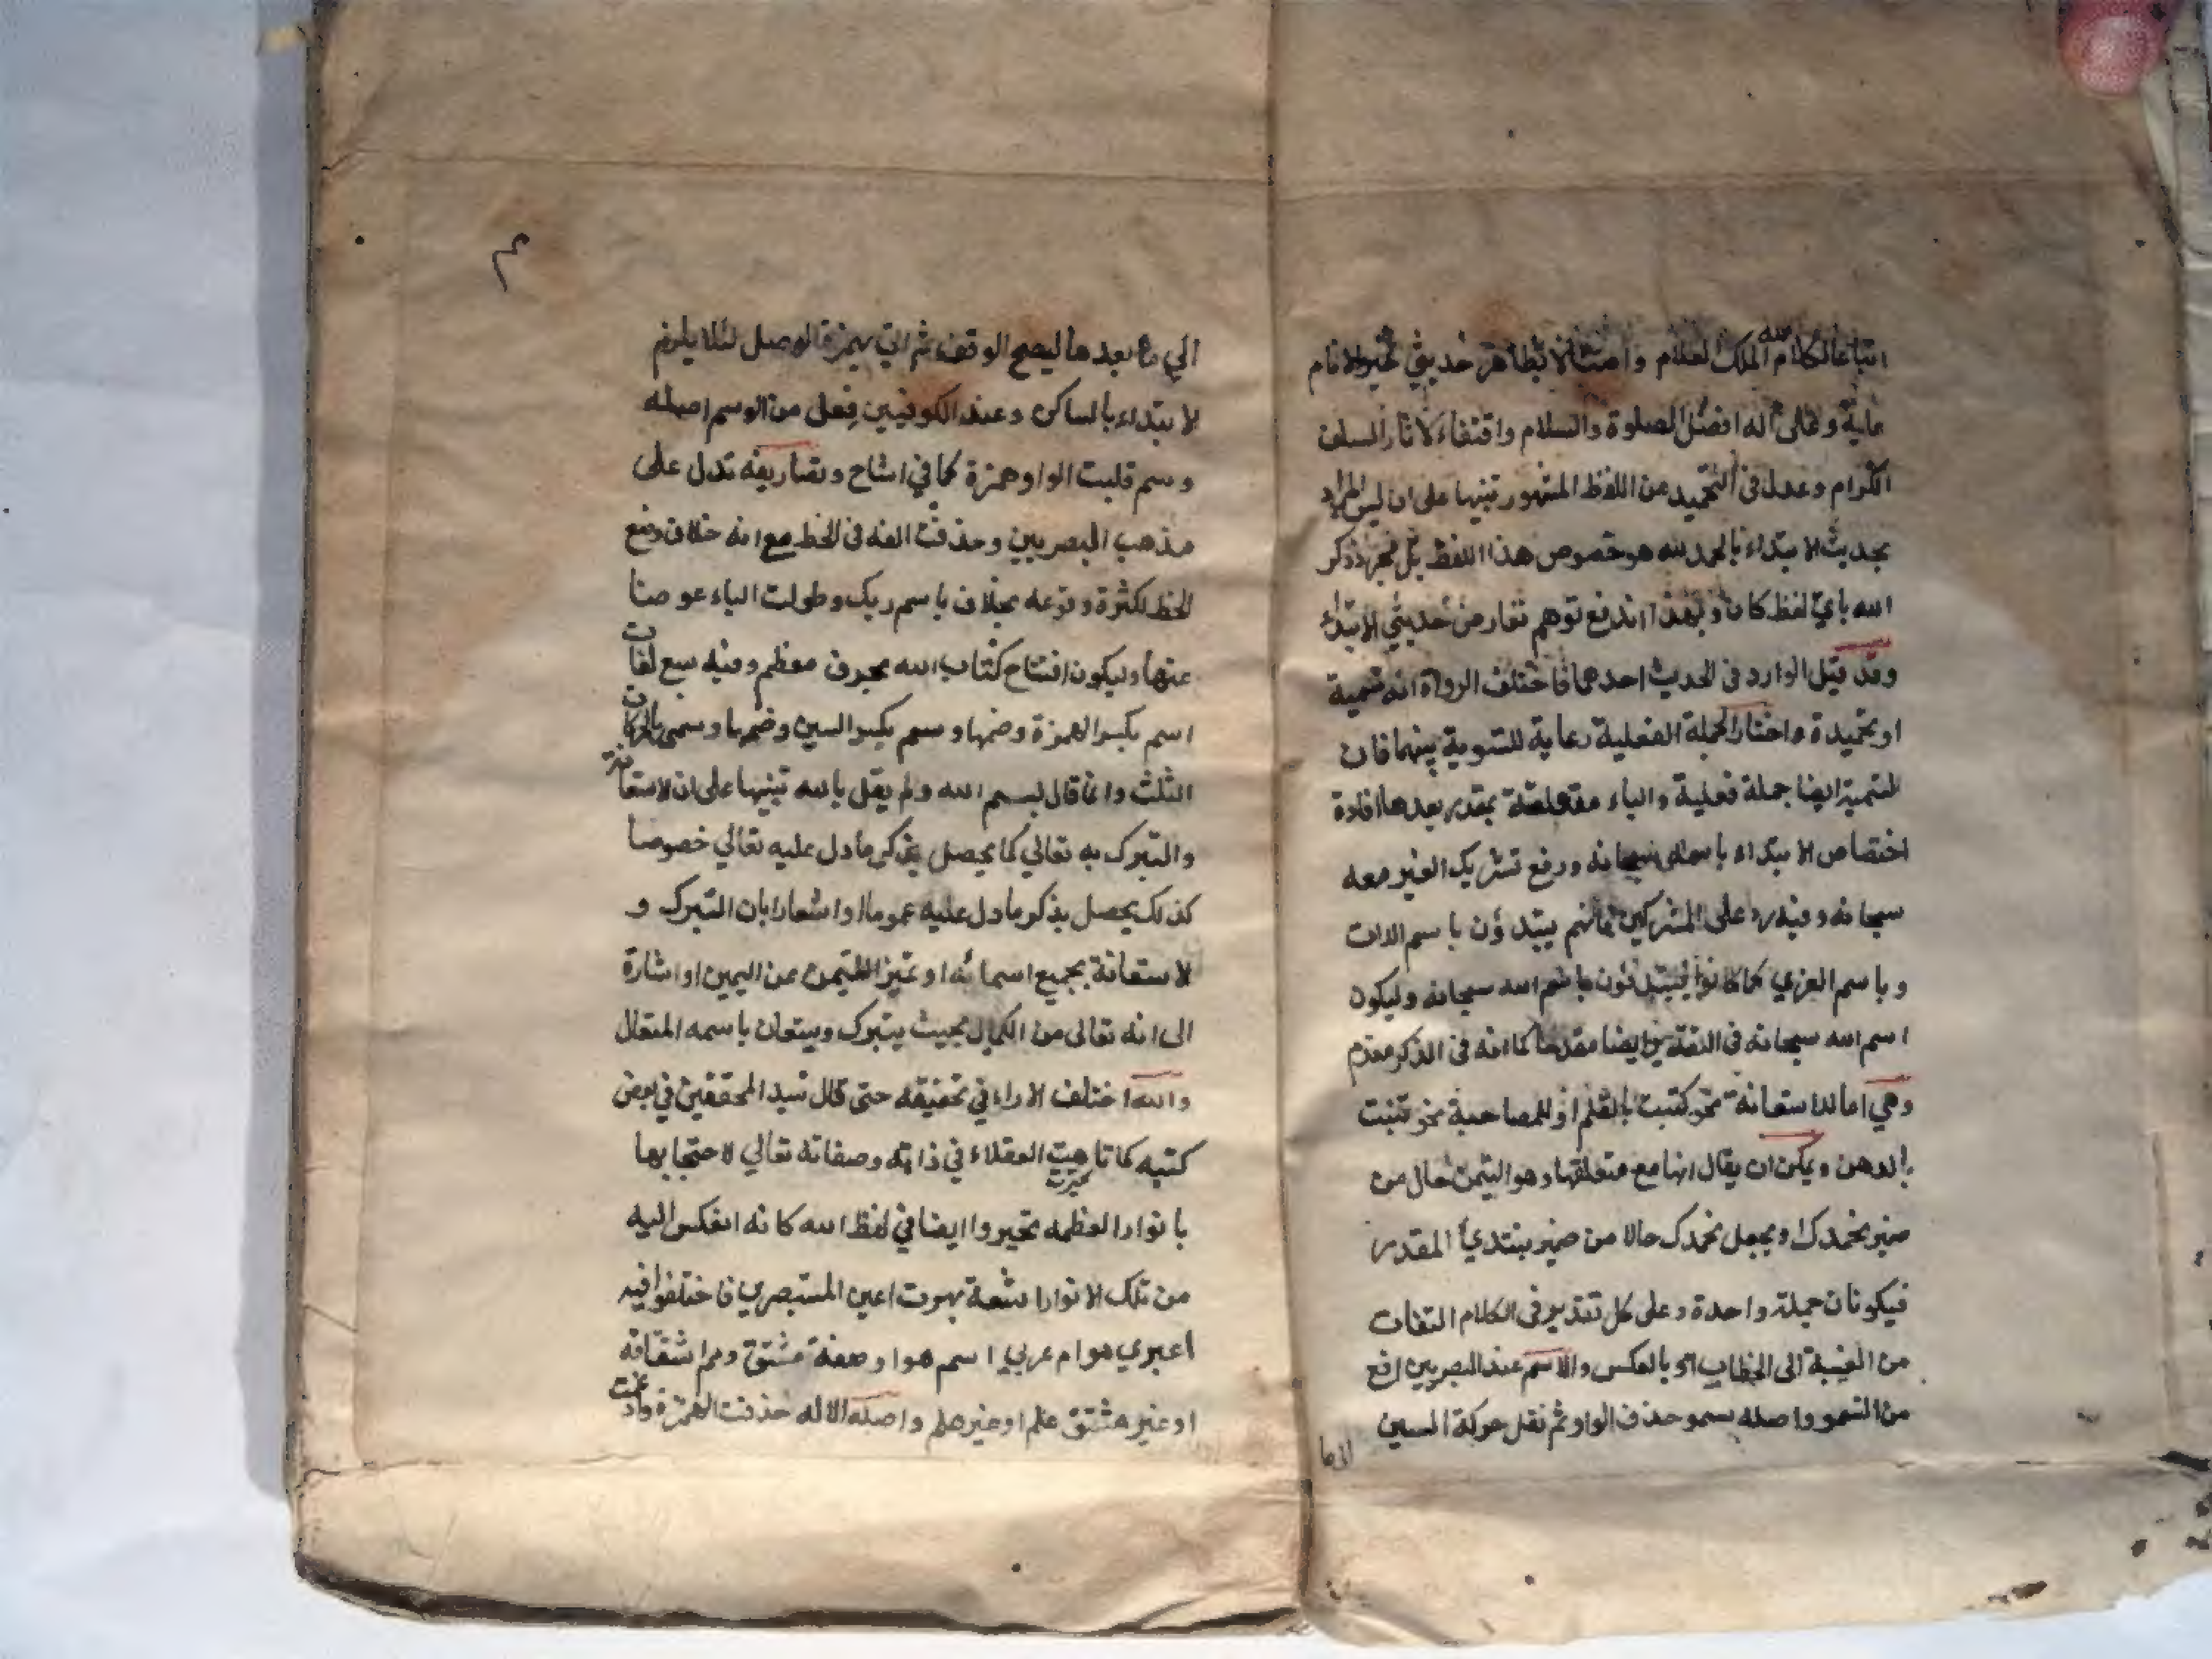 اتباعا لكلام الله الملك العلام وامتثالا لظاهر حديثي خير الانام
عليه وعلى اله افضل الصلوة والسلام واقتفاء لاثار السلف
الكرام وعدل في التحميد من اللفظ المشهور تنبيها على ان ليس المراد
بحديث الابتداء بالحمد لله هو خصوص هذا اللفظ بل مجرد ذكر
الله باي لفظ كان وبهذا اندفع توهم تعارض حديثي الابتداء
وقد قيل الوارد في الحديث احدهما فاختلف الرواة انه تسمية
او تحميدة واختار الجملة الفعلية رعاية للتسوية بينهما فان
التسمية ايضا جملة فعلية والباء متعلقة بمقدر بعدها افادة
اختصاص الابتداء باسمه سبحانه ورفع تشريك الغير معه
سبحانه وفيه رد على المشركين فانهم يبتدؤن باسم اللات
وباسم العزي كما كانوا يبتدئون باسم الله سبحانه وليكون
اسم الله سبحانه في التقدير ايضا مقدما كما انه في الذكر مقدم
وهي اما للاستعانة نحو كتبت بالقلم او للمصاحبة نحو تنبت
بالدهن ويمكن ان يقال انها مع متعلقها وهو التيمن حال من
ضمير نحمدك او يجعل نحمدك حالا من ضمير يبتدئ المقدر
فيكونان جملة واحدة وعلى كل تقدير في الكلام التفات
من الغيبة الى الخطاب او بالعكس والاسم عند البصريين افع
من السمو واصله سمو حذف الواو ثم نقل حركة السين
الى ما
٣
الي ما بعدها ليصح الوقف ثم اتي بهمزة الوصل لئلا يلزم
الابتداء بالساكن وعند الكوفيين فعل من الوسم اصله
وسم قلبت الواو همزة كما في اشاح وتصاريفه تدل على
مذهب البصريين وحذفت الفه في الخط مع انه خلاف وضع
الخط لكثرة وقوعه بخلاف باسم ربك وطولت الباء عوضا
عنها وليكون افتتاح كتاب الله بحرف معظم وفيه سبع لغات
اسم بكسر الهمزة وضمها وسم بكسر السين وضمها وسمى بالحركات
الثلث وانما قال بسم الله ولم يقل بالله تنبيها على ان الاستعانة
والتبرك به تعالي كما يحصل بذكر ما دل عليه تعالي خصوصا
كذلك يحصل بذكر ما دل عليه عموما او اشعارا بان التبرك و
الاستعانة بجميع اسمائه او تميز التيمن عن اليمين او اشارة
الى انه تعالى من الكمال بحيث يتبرك ويستعان باسمه المتعال
والله اختلف الاراء في تحقيقه حتى قال سيد المحققين في بعض
كتبه كما تاهت العقلاء في ذاته وصفاته تعالي لاحتجابها
تحيرت
بانوار العظمه تحيروا ايضا في لفظ الله كانه انعكس اليه
من تلك الانوار اشعة بهرت اعين المستبصري فاختلفوا فيه
اعبري هو ام عربي اسم هو او صفة مشتق ومم اشتقاقه
او غير مشتق علم او غير علم واصله الاله حذفت الهمزة وادغمت